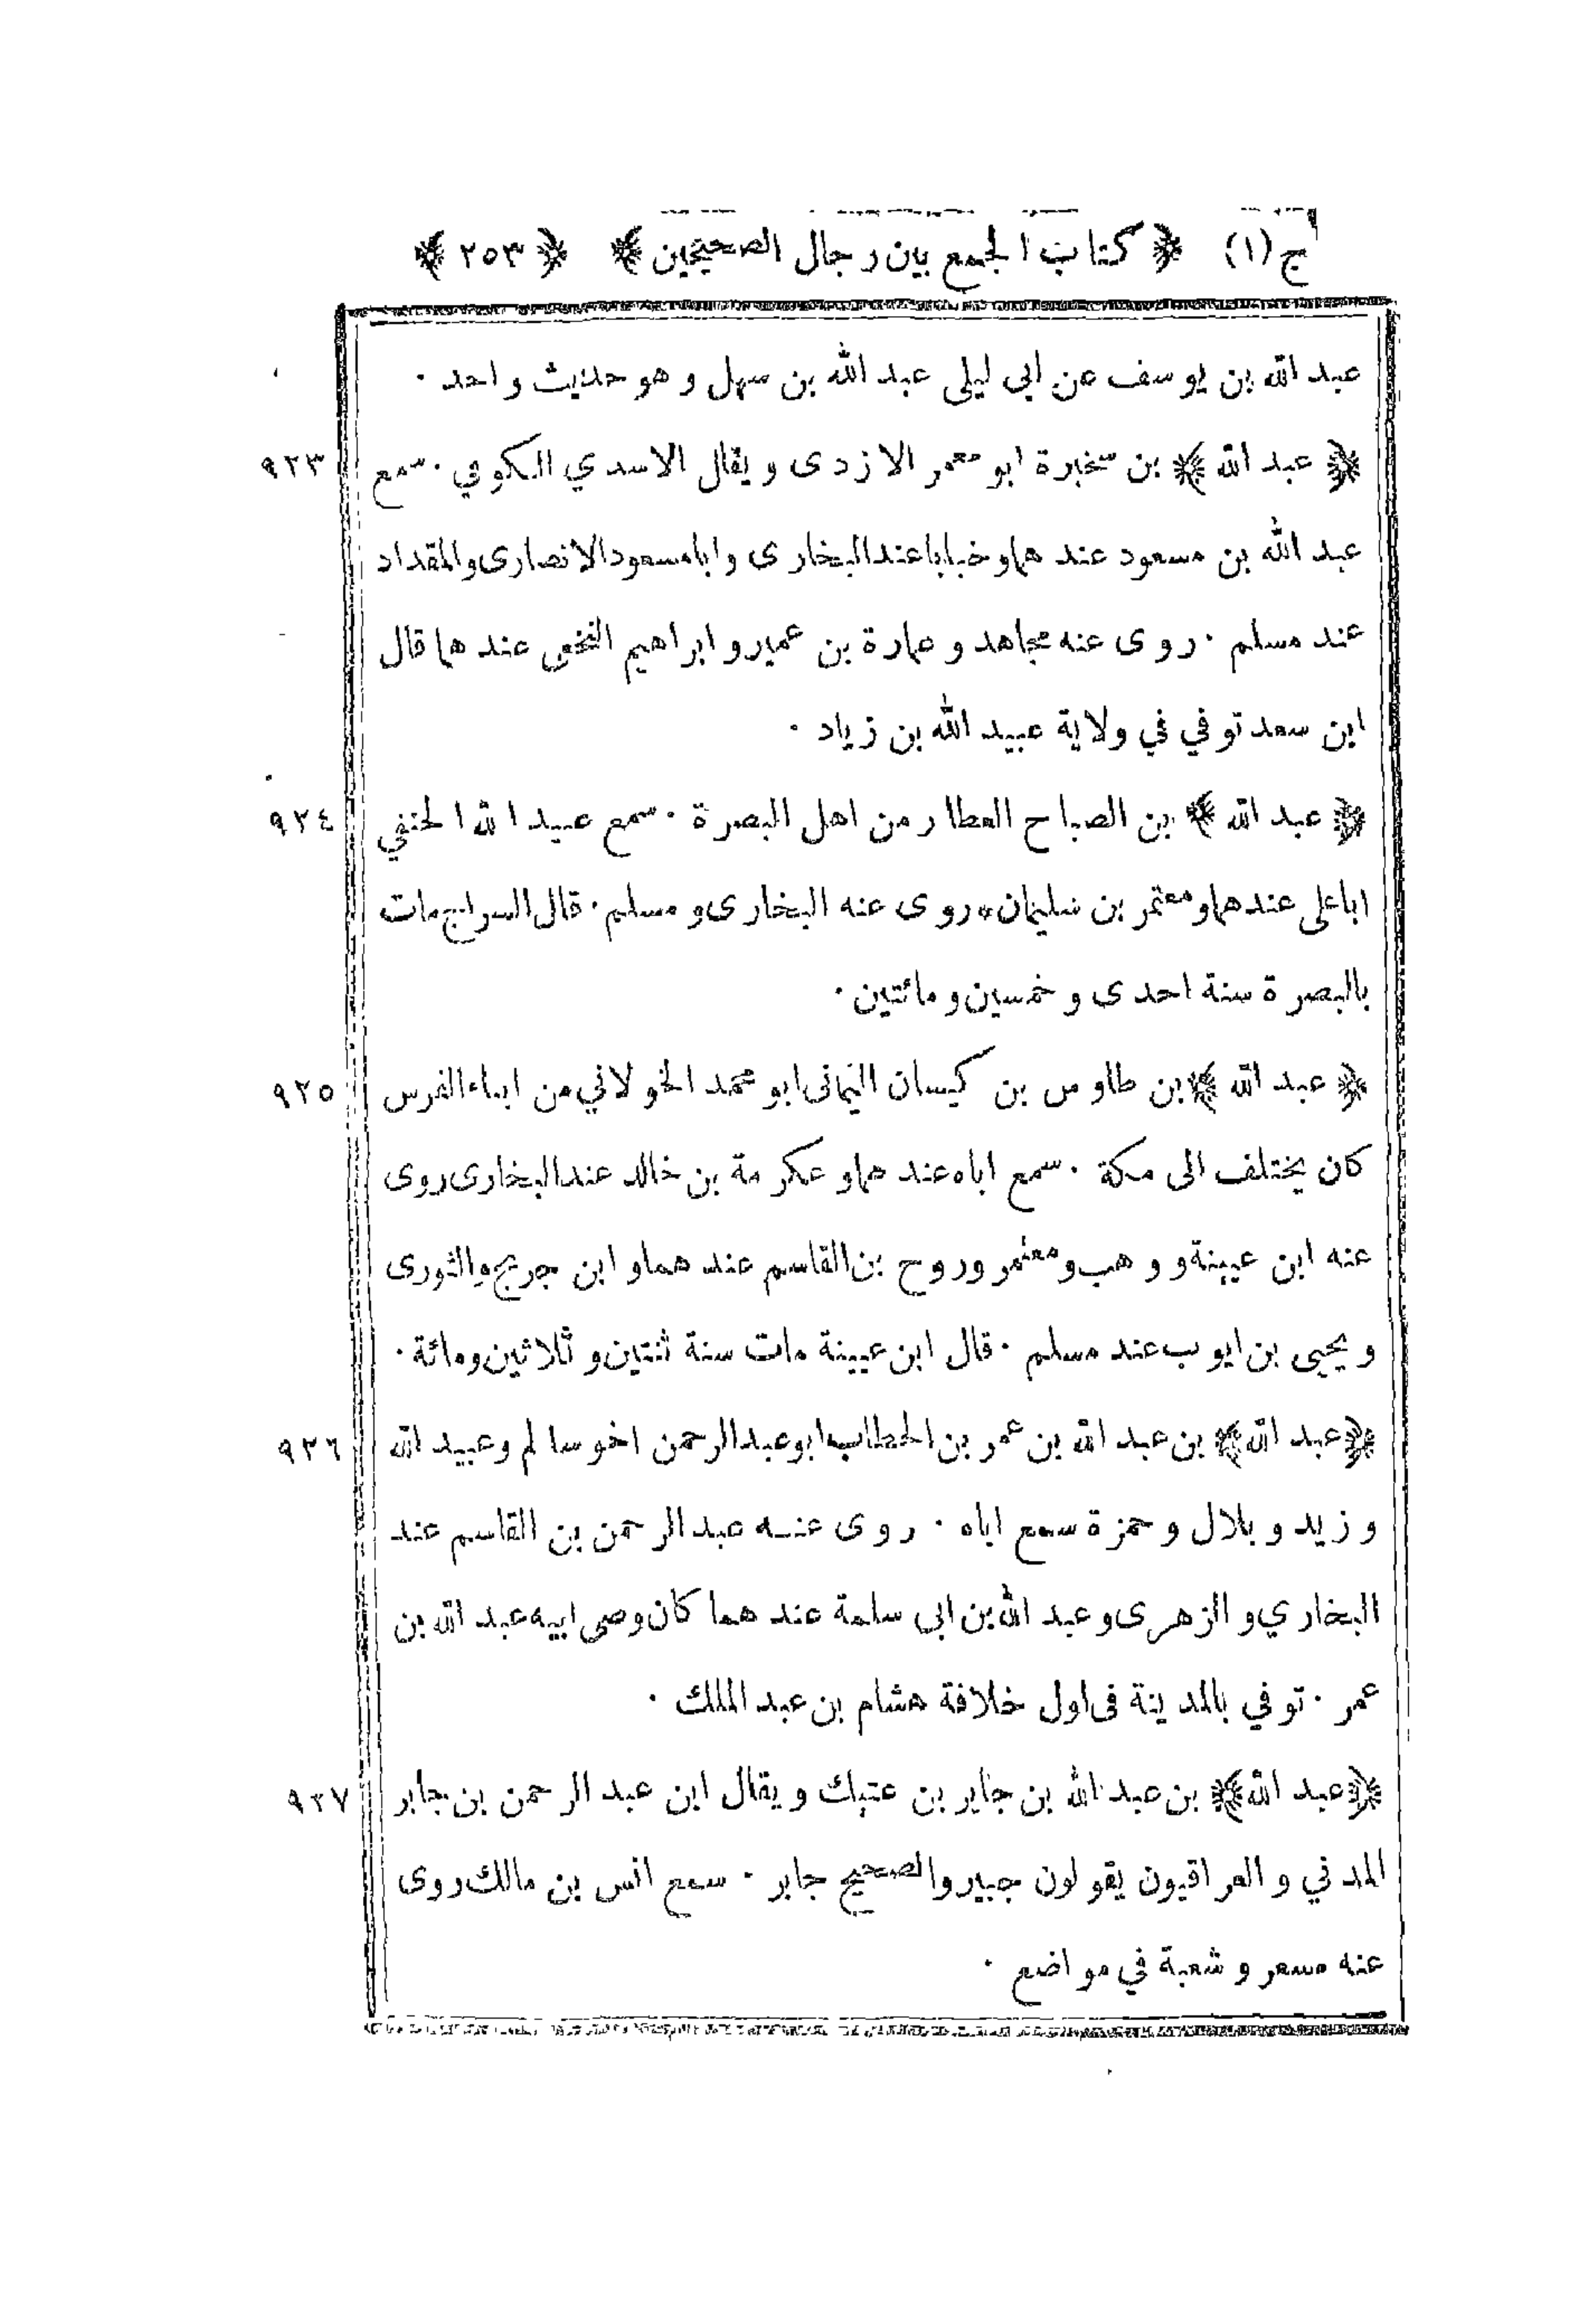 ج (١) ﴿ كتاب الجمع بين رجال الصحيحين ﴾ ﴿ ٢٥٣ ﴾
عبد الله بن يوسف عن ابي ليلى عبد الله بن سهل و هو حديث واحد ·
﴿ عبد الله ﴾ بن سخبرة ابو معمر الازدى ويقال الاسدي الكوفي · سمع ٩٢٣
عبد الله بن مسعود عندهما وخبابا عند البخارى وابا مسعود الانصارى والمقداد
عند مسلم · روى عنه مجاهد و عمارة بن عمير و ابراهيم النخعي عندهما قال
ابن سعد توفي في ولاية عبيد الله بن زياد ·
﴿ عبد الله ﴾ بن الصباح العطار من اهل البصرة · سمع عبيد الله الحنفي ٩٢٤
اباعلى عندهما ومعتمر بن سليمان * روى عنه البخارى و مسلم · قال السراج مات
بالبصرة سنة احدى و خمسين و مائتين ·
﴿ عبد الله ﴾ بن طاوس بن كيسان اليمانى ابو محمد الخولاني من ابناء الفرس ٩٢٥
كان يختلف الى مكة · سمع اباه عندهما و عكرمة بن خالد عند البخارى روى
عنه ابن عيينة و وهب و معتمر وروح بن القاسم عندهما و ابن جريج والثورى
و يحيى بن ايوب عند مسلم · قال ابن عيينة مات سنة ثنتين و ثلاثين ومائة ·
﴿ عبد الله ﴾ بن عبد الله بن عمر بن الخطاب ابو عبد الرحمن اخو سالم وعبيد الله ٩٢٦
و زيد و بلال و حمزة سمع اباه · روى عنه عبد الرحمن بن القاسم عند
البخاري و الزهرى و عبد الله بن ابى سلمة عندهما كان وصى ابيه عبد الله بن
عمر · توفي بالمدينة فى اول خلافة هشام بن عبد الملك ·
﴿ عبد الله ﴾ بن عبد الله بن جابر بن عتيك ويقال ابن عبد الرحمن بن جابر ٩٢٧
المدني و العراقيون يقولون جبير والصحيح جابر · سمع انس بن مالك روى
عنه مسعر و شعبة في مواضع ·